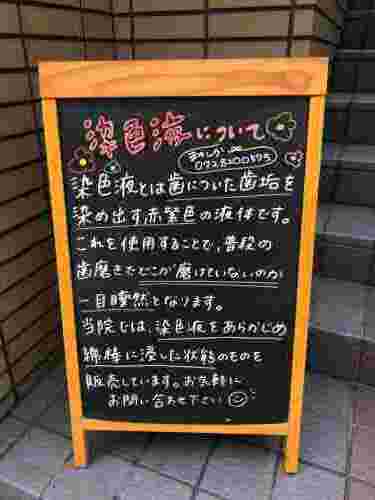 染色液について
0728200575
染色液とは歯についた歯垢を
染め出す赤紫色の液体です。
これを使用することで、普段の
歯磨きでどこが磨けていないのか
一目瞭然となります。
当院では、染色液をあらかじめ
綿棒に浸した状態のものを
販売しています。お気軽に
お問い合わせ下さい